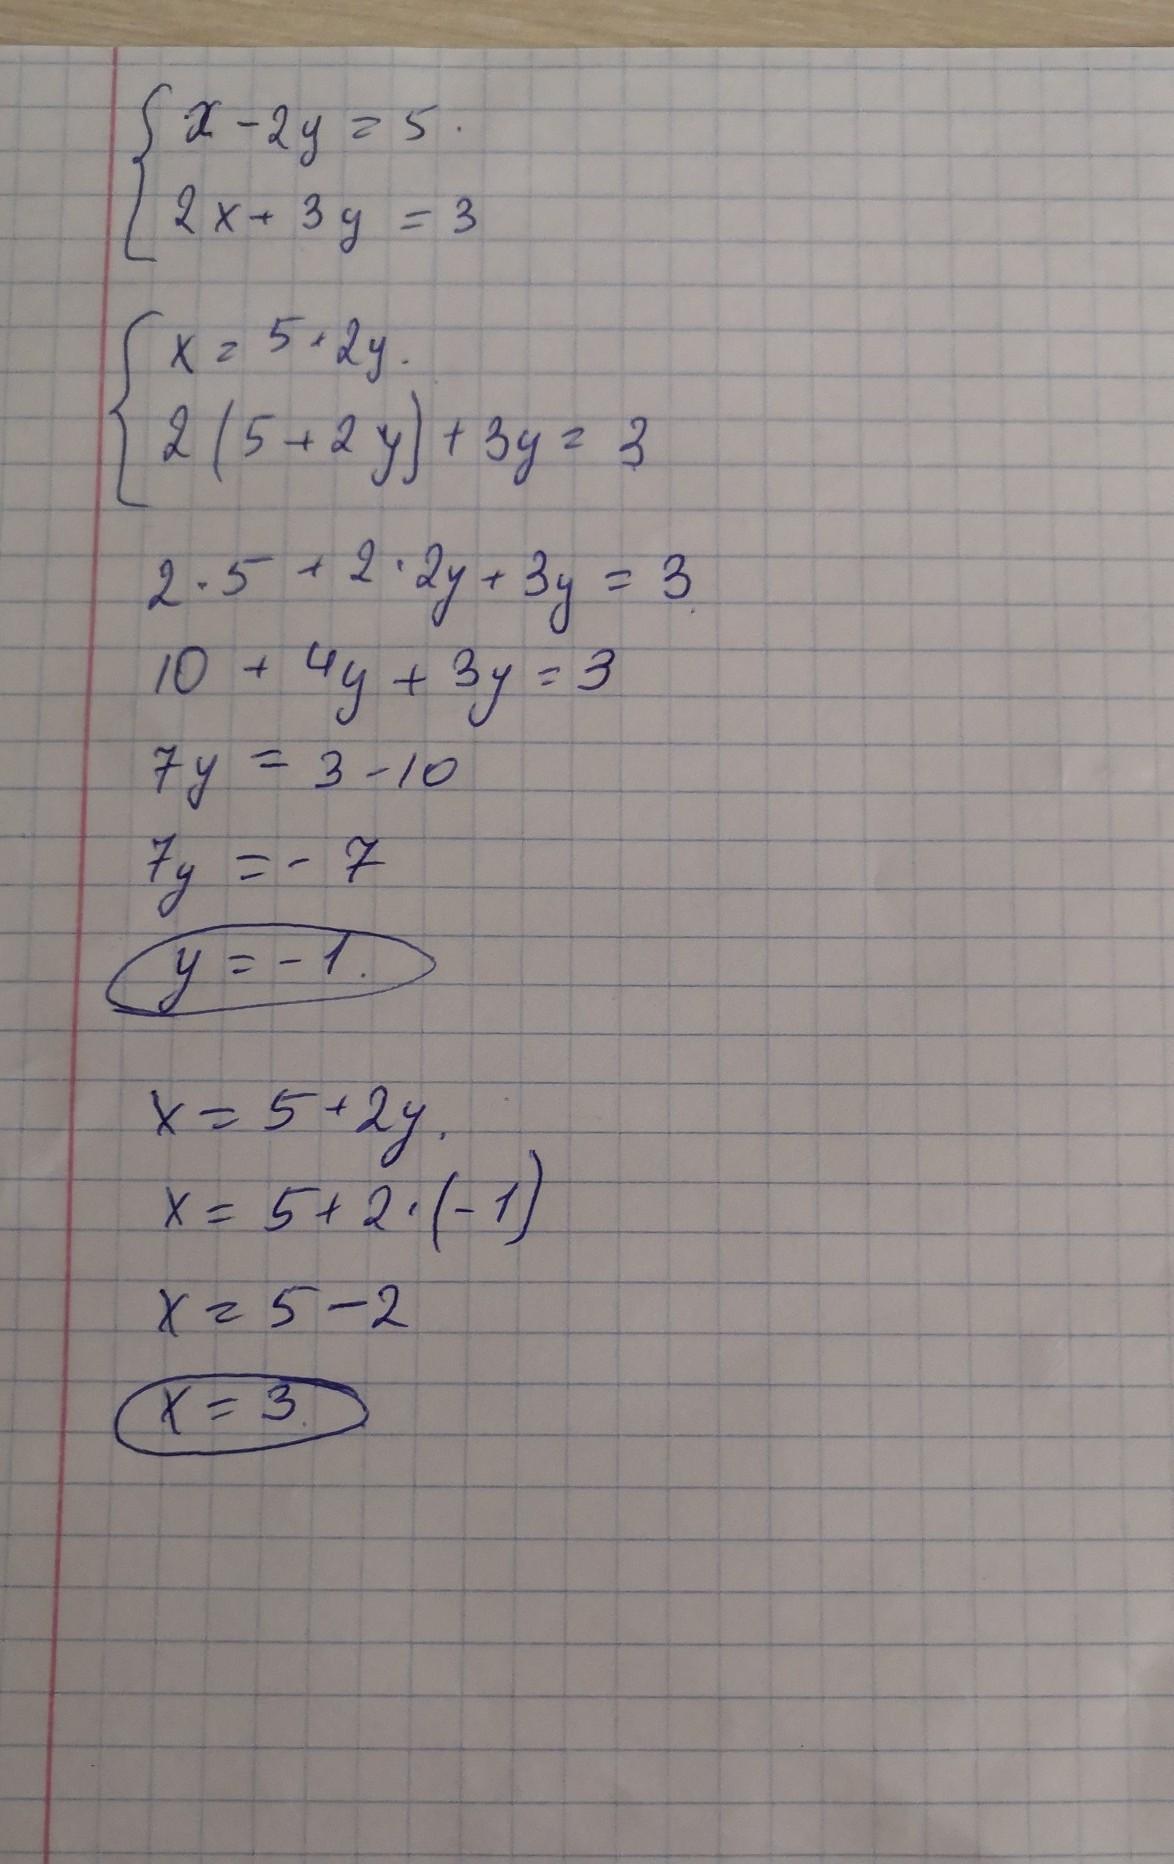 x - 2y = 5.
2x + 3y = 3
x = 5 + 2y.
2(5 + 2y) + 3y = 3
2·5 + 2·2y + 3y = 3
10 + 4y + 3y = 3
7y = 3 - 10
7y = - 7
y = -1.
x = 5 + 2y.
x = 5 + 2·(-1)
x = 5 - 2
x = 3.